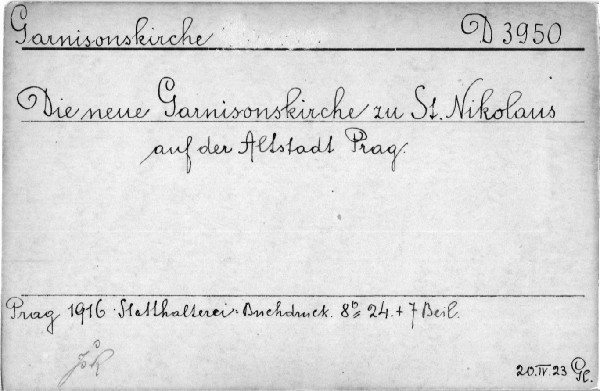 Garnisonskirche D 3950
Die neue Garnisonskirche zu St. Nikolaus
auf der Altstadt Prag.
Prag 1916 Statthalterei-Buchdruck. 8º 24 + 7 Beil.
20.IV.23 Gl.